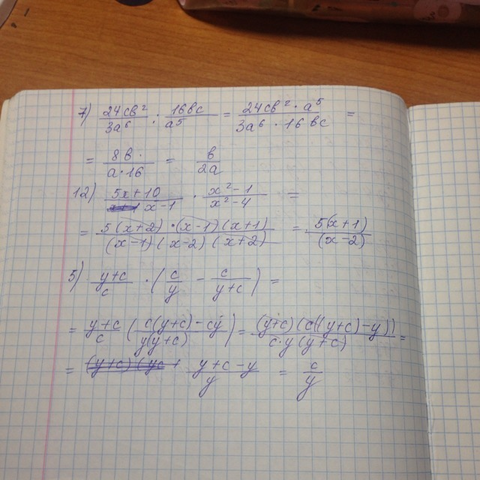 7) 24cв²/3a⁶ : 16вc/a⁵ = 24cв² · a⁵/3a⁶ · 16вc =
= 8в·/a·16 = в/2a
12) 5x+10/x-1 · x²-1/x²-4 =
= 5(x+2)·(x-1)(x+1)/(x-1)(x-2)(x+2) = 5(x+1)/(x-2)
5) y+c/c · (c/y - c/y+c) =
= y+c/c (c(y+c)-cy/y(y+c)) = (y+c)(c((y+c)-y))/c·y(y+c) =
= y+c-y/y = c/y